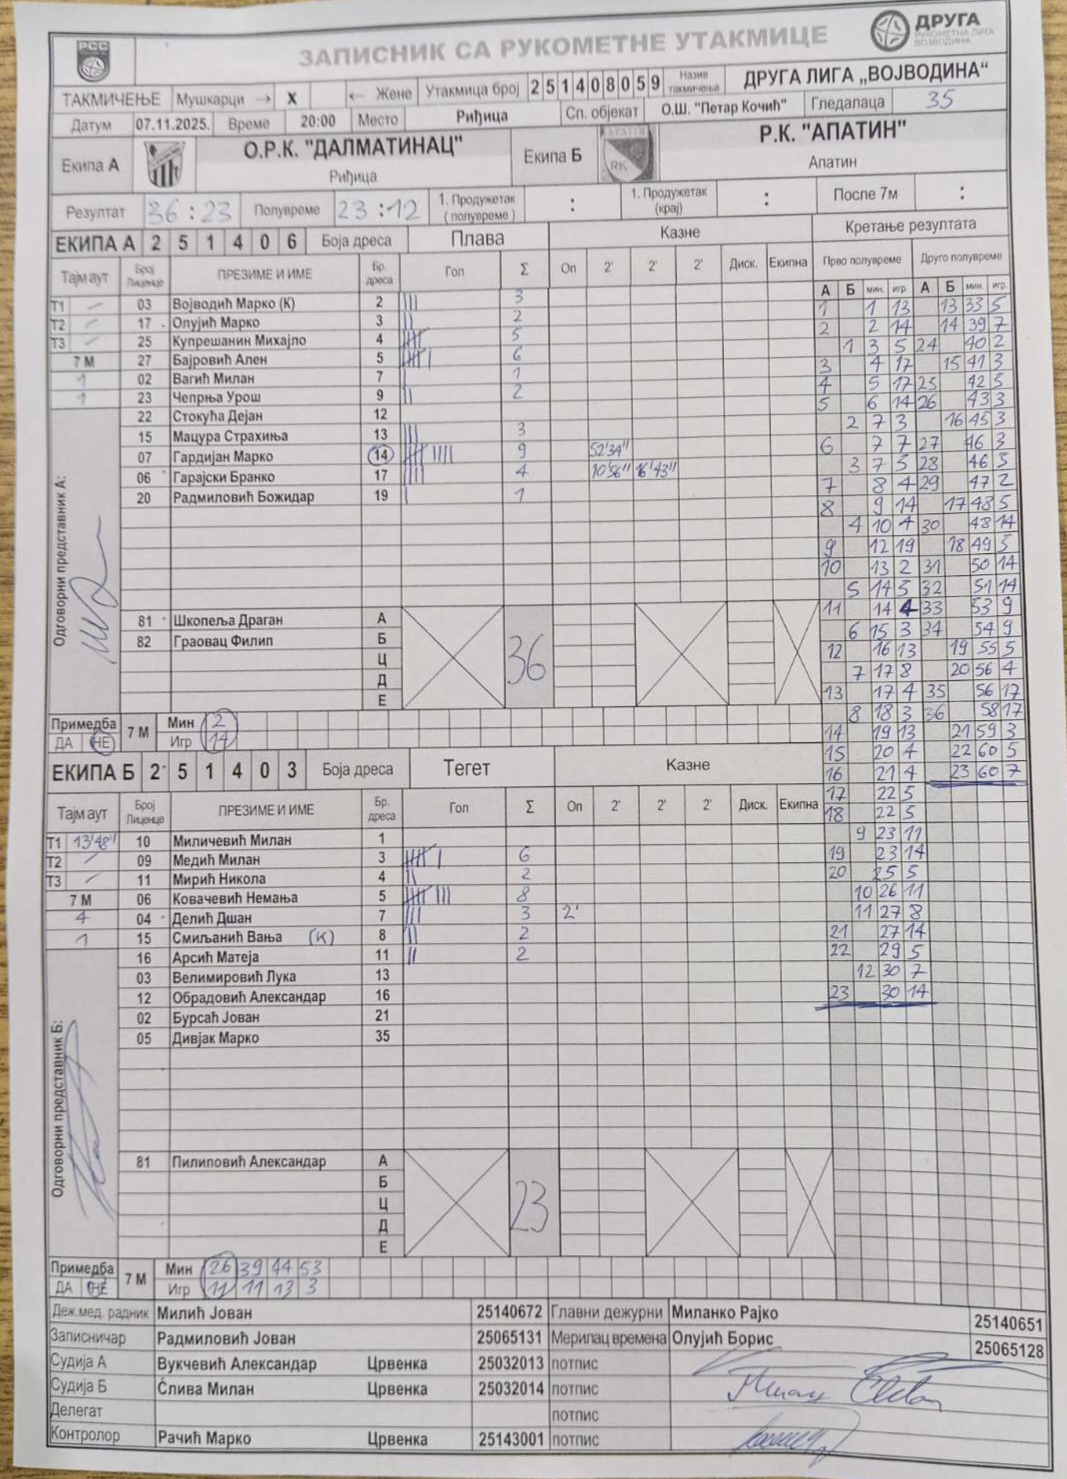 РСС
ЗАПИСНИК СА РУКОМЕТНЕ УТАКМИЦЕ
ДРУГА
РУКОМЕТНА ЛИГА
ВОЈВОДИНА
ТАКМИЧЕЊЕ Мушкарци → X ← Жене Утакмица број 2 5 1 4 0 8 0 5 9 Назив такмичења ДРУГА ЛИГА „ВОЈВОДИНА“
Датум 07.11.2025. Време 20:00 Место Риђица Сп. објекат О.Ш. "Петар Кочић" Гледалаца 35
Екипа А О.Р.К. "ДАЛМАТИНАЦ" Риђица Екипа Б АПАТИН RK Р.К. "АПАТИН" Апатин
Резултат 36 : 23 Полувреме 23 : 12 1. Продужетак (полувреме) : 1. Продужетак (крај) : После 7м :
ЕКИПА А 2 5 1 4 0 6 Боја дреса Плава Казне Кретање резултата
Тајм аут Број Лиценце ПРЕЗИМЕ И ИМЕ Бр. дреса Гол Σ Оп 2' 2' 2' Диск. Екипна Прво полувреме Друго полувреме
А Б мин. игр. А Б мин. игр.
Т1 – 03 Војводић Марко (К) 2 ||| 3
Т2 – 17 Олујић Марко 3 || 2
Т3 – 25 Купрешанин Михајло 4 5
7 М 27 Бајровић Ален 5 6
1 02 Вагић Милан 7 | 1
1 23 Чепрња Урош 9 || 2
22 Стокућа Дејан 12
15 Мацура Страхиња 13 ||| 3
07 Гардијан Марко 14 9 52'34"
06 Гарајски Бранко 17 |||| 4 10'56" 16'43"
20 Радмиловић Божидар 19 | 1
Одговорни представник А:
81 Шкопеља Драган А
82 Граовац Филип Б
Ц
Д
Е
36
Примедба ДА НЕ 7 М Мин 2
Игр 14
1 1 13 13 33 5
2 2 14 14 39 7
1 3 5 24 40 2
3 4 17 15 41 3
4 5 17 25 42 5
5 6 14 26 43 3
2 7 3 16 45 3
6 7 7 27 46 3
3 7 5 28 46 5
7 8 4 29 47 2
8 9 14 17 48 5
4 10 4 30 48 14
9 12 19 18 49 5
10 13 2 31 50 14
5 14 5 32 51 14
11 14 4 33 53 9
6 15 3 34 54 9
12 16 13 19 55 5
7 17 8 20 56 4
13 17 4 35 56 17
8 18 3 36 58 17
14 19 13 21 59 3
15 20 4 22 60 5
16 21 4 23 60 7
17 22 5
18 22 5
9 23 11
19 23 14
20 25 5
10 26 11
11 27 8
21 27 14
22 29 5
12 30 7
23 30 14
ЕКИПА Б 2 5 1 4 0 3 Боја дреса Тегет Казне
Тајм аут Број Лиценце ПРЕЗИМЕ И ИМЕ Бр. дреса Гол Σ Оп 2' 2' 2' Диск. Екипна
Т1 13'48" 10 Миличевић Милан 1
Т2 – 09 Медић Милан 3 6
Т3 – 11 Мирић Никола 4 || 2
7 М 06 Ковачевић Немања 5 8
4 04 Делић Дшан 7 ||| 3 2'
1 15 Смиљанић Вања (К) 8 || 2
16 Арсић Матеја 11 || 2
03 Велимировић Лука 13
12 Обрадовић Александар 16
02 Бурсаћ Јован 21
05 Дивјак Марко 35
Одговорни представник Б:
81 Пилиповић Александар А
Б
Ц
Д
Е
23
Примедба ДА НЕ 7 М Мин 26 39 44 53
Игр 11 11 13 3
Деж.мед. радник Милић Јован 25140672 Главни дежурни Миланко Рајко 25140651
Записничар Радмиловић Јован 25065131 Мерилац времена Олујић Борис 25065128
Судија А Вукчевић Александар Црвенка 25032013 потпис
Судија Б Слива Милан Црвенка 25032014 потпис
Делегат потпис
Контролор Рачић Марко Црвенка 25143001 потпис